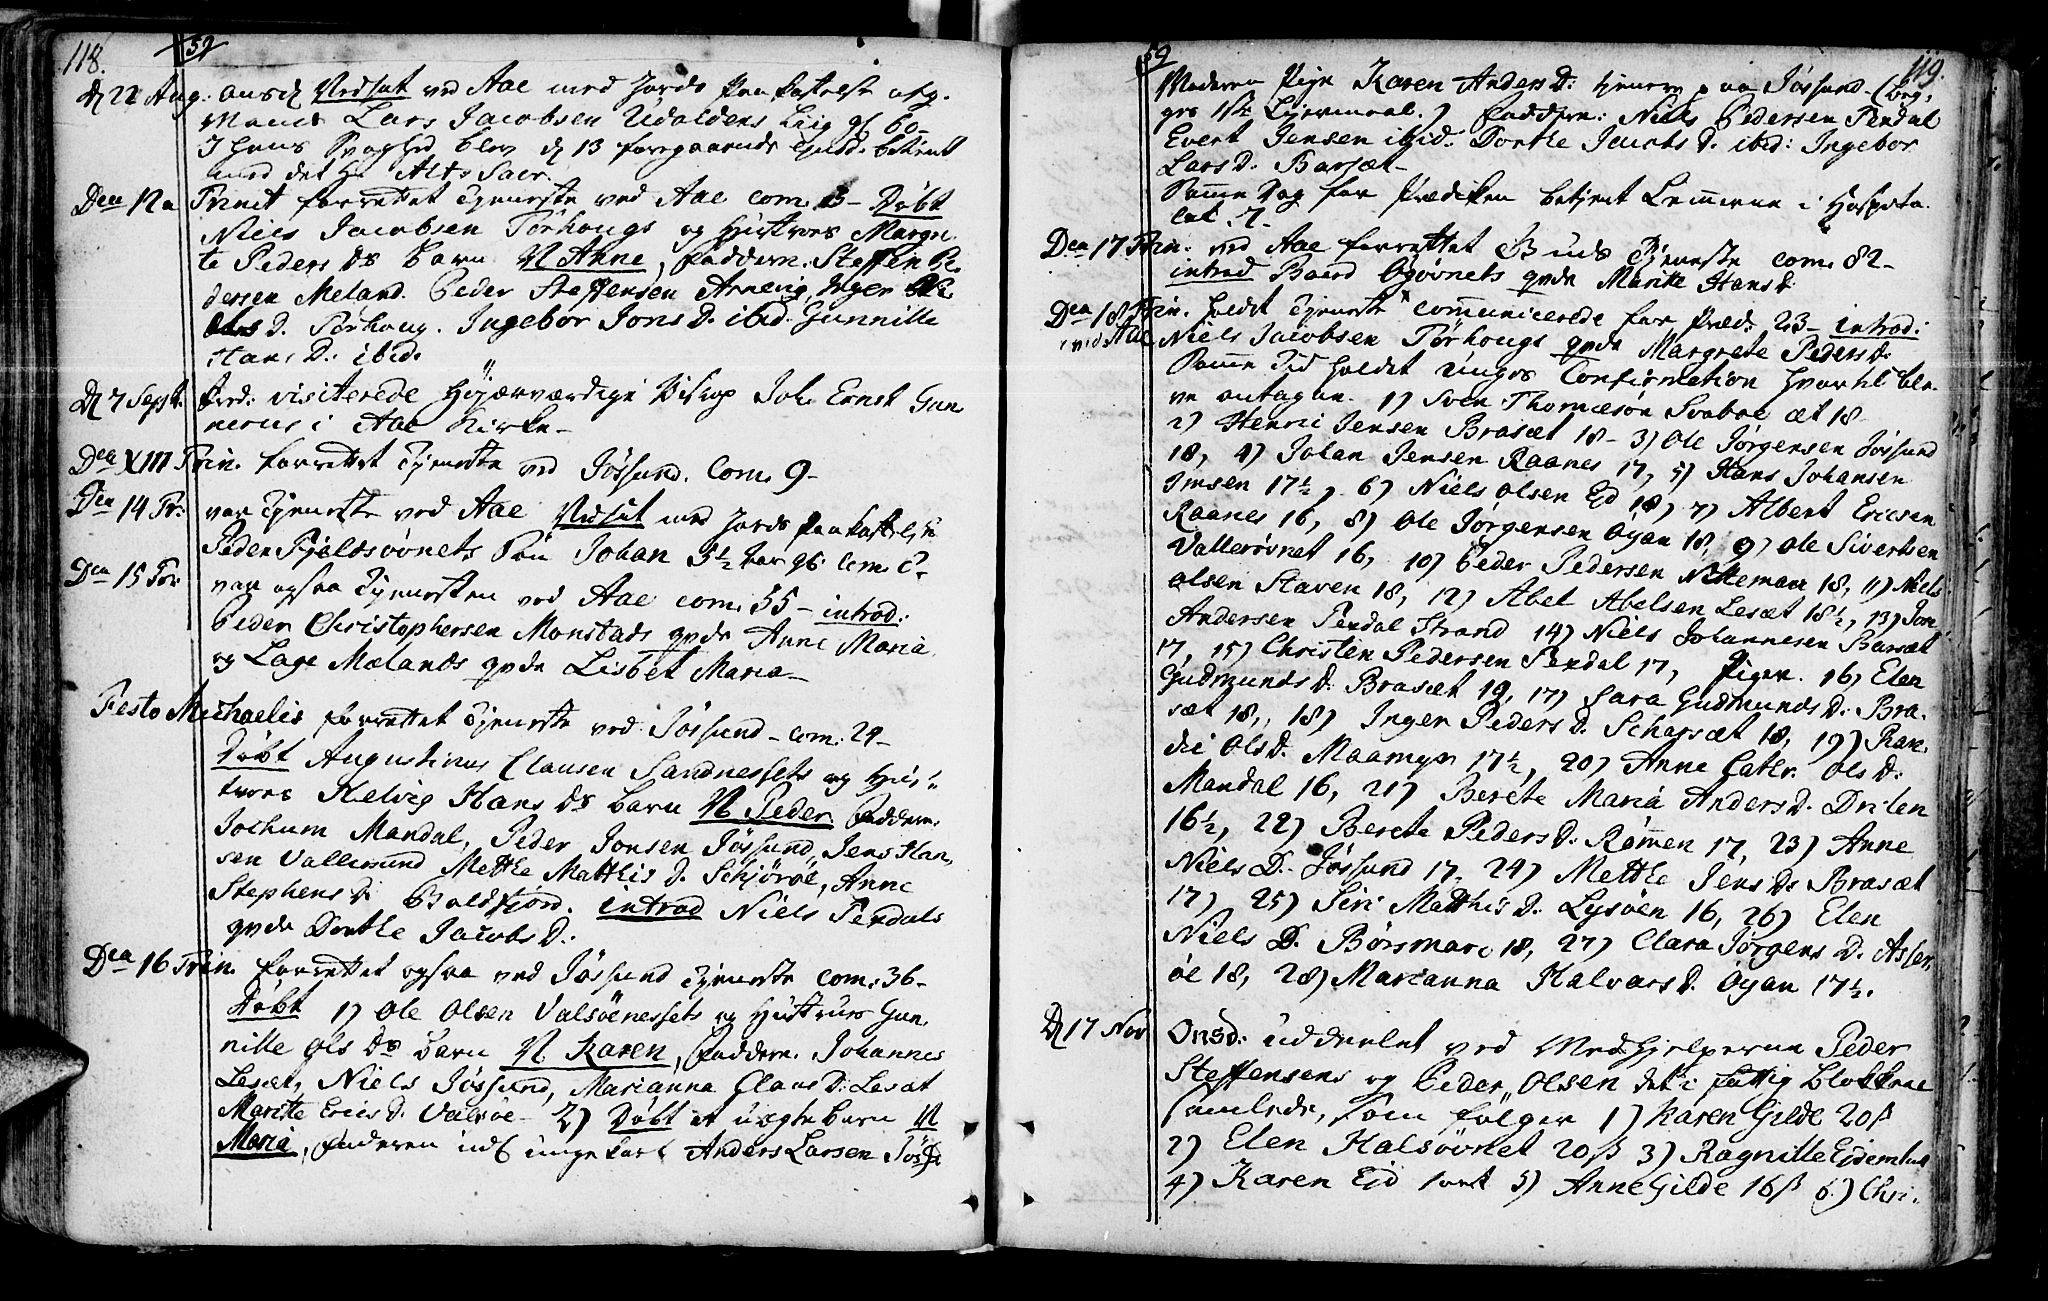 118.
59
D 22 Aug. onsd. Vedsat ved Aae med Jords Paakastelse afg.
Mand Lars Jacobsen Udaldens Liig gl. 60-
I hans Svaghed blev d 13 foregaaende ejusd. betient
med det H. Alt. Sacr.
Dca 12a Trinit forrettet Tjeneste ved Aae com. 3- Døbt
Niels Jacobsen Tørhougs og Hustroes Margre
te Peders Ds barn N Anne, Faddere. Steffen Pe
dersen Meland. Peder Steffensen Arnevig, Inger
Ols D. Tørhoug. Ingebor Jons D. ibid. Gunnille
Hans D. ibid.
D 7 Sept. visiterede Højærværdige Biskop Joh. Ernst Gun
nerus i Aae Kirke-
Dca XIII Trin. forrettet Tjeneste ved Jøssund. Com. 9-
Dca 14 Tr: var Tjeneste ved Aae Vedsat med Jords Paakastelse
Peder Fjeldsøvnets Søn Johan
Dca 15 Tr: var ogsaa Tjenesten ved Aae com. 55- introd:
Peder Christophersen Monstads qvde Anne Maria
og Lage Mælands qvde Lisbet Maria-
Festo Michaelis forrettet Tjeneste ved Jøssund- com. 29-
Døbt Augustinus Clausen Sandnessets og Hus
troes Helvig Hans Ds barn N Peder. Faddere.
Jochum Mandal, Peder Jonsen Jøssund, Jens Han
sen Vallersund Mette Matthis D. Schjøröe, Anne
Stephens D. Boldfjord. introd Niels Tendals
qvde Dorthe Jacobs D:
Dca 16 Trin. forrettet ogsaa ved Jøssund Tjeneste com. 36-
Døbt 1) Ole Olsen Valsöenessets og Hustrues Gun
nille Ols Ds barn N Karen, Faddere. Johannes
Lesæt, Niels Jøssund, Marianna Claus D: Lesæt
Maritte Erics D. Valsøe- 2) Døbt et uægte barn N
Maria, Faderen udl. unge karl Anders Larsen Jøss

59
119.
Moderen Pige Karen Anders D: tjenere paa Jøssund- (beg
ges 1ste Lejermaal.) Faddere: Niels Pedersen Tendal
Evert Jensen ibid. Dorthe Jacobs D. ibid: Ingebor
Lars D. Barsæt-
Samme Dag før Prædiken betjent Lemmerne i Hospita
let 7-
Dca 17 Trin. ved Aae forrettet Guds Tjeneste com. 82-
introd Baard Ogøvnets qvde Maritte Hans D
Dca 18 Trin. holdt Tjeneste communicerede før Præd: 23- introd:
ved Aae Niels Jacobsen Tørhougs qvde Margrete Peders D.
Samme Tid holdet unges Confirmation hvortil ble
ve antagne. 1) Sven Thomæsøn Svaboe æt 18
2) Henric Jensen Brasæt 18- 3) Ole Jørgensen Jøssund
18, 4) Johan Jensen Raanes 17, 5) Hans Johansen
Imsen 17½, 6) Niels Olsen Eid 18, 7) Albert Ericsen
Raanes 16, 8) Ole Jørgensen Oyan 18, 9) Ole Sivertsen
Vallersøvnet 16, 10) Peder Pedersen Nitteman 18, 11) Niels
Olsen Staven 18, 12) Abel Abelsen Lesæt 18½, 13) Jon
Andersen Tendal Strand 14) Niels Johannesen Barsæt
17, 15) Christen Pedersen Tendal 17, Piger. 16) Elen
Gudmunds D. Brasæt 19, 17) Sara Gudmunds D: Bra
sæt 18, 18) Inger Peders D. Schagsæt 18, 19) Ran
di Ols D. Maamyr 17½, 20) Anne Cathr. Ols D:
Mandal 16, 21) Berete Maria Anders D. Drilen
16½, 22) Berete Peders D: Rømmen 17, 23) Anne
Niels D. Jøssund 17, 24) Metthe Jens Ds Brasæt
17) 25) Siri Matthis D. Lysøen 16, 26) Elen
Niels D. Børsmare 18, 27) Clara Jørgens D. Asser
öe 18, 28) Marianna Halvars D. Oyan 17½.
D 17 Nov Onsd: uddeelet ved Medhjelperne Peder
Steffensens og Peder Olsen det i fattig blokkene
samlede, som følger 1) Karen Gilde 20 ß
2) Elen Halsøvnet 20 ß 3) Ragnille
4) Karen Eid 5) Anne Gilde 16 ß 6) Chri